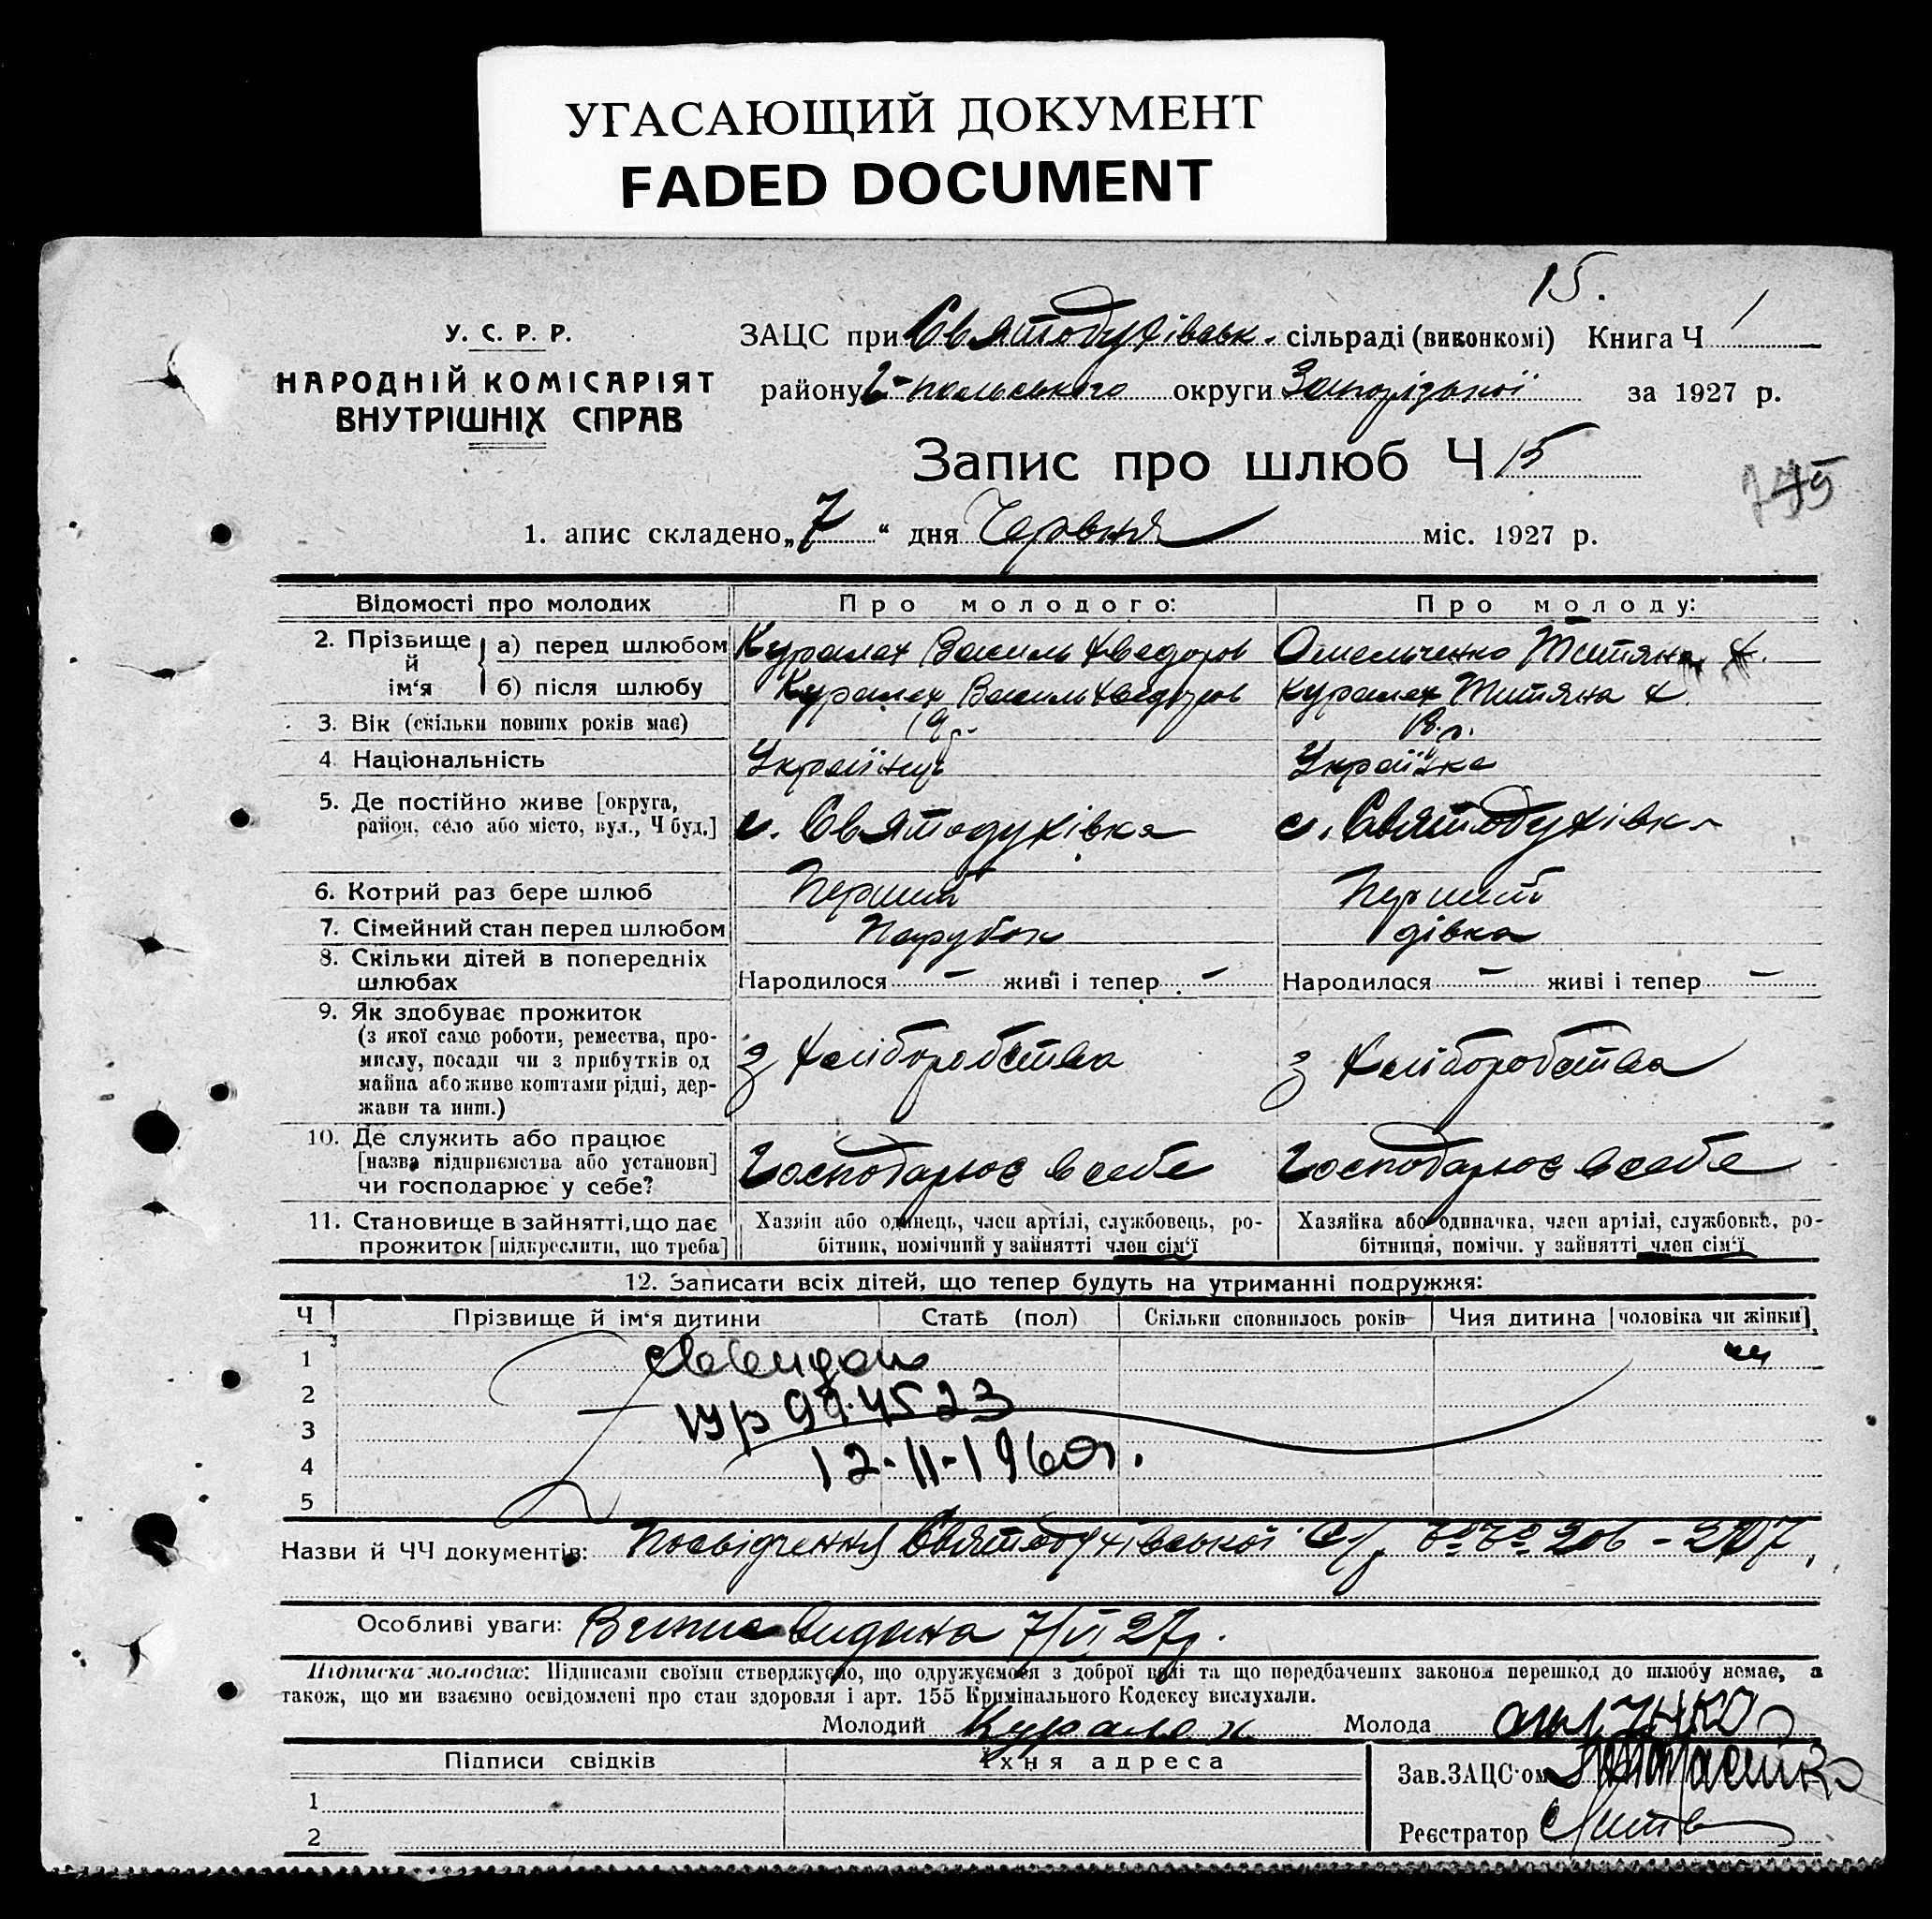 УГАСАЮЩИЙ ДОКУМЕНТ
FADED DOCUMENT
15.
У. С. Р. Р.
НАРОДНІЙ КОМІСАРІЯТ
ВНУТРІШНІХ СПРАВ
ЗАЦС при Святодухівськ. сільраді (виконкомі) Книга Ч 1
району польського округи Запорізької за 1927 р.
Запис про шлюб Ч 15
1. апис складено „7“ дня Червня міс. 1927 р.
Відомості про молодих Про молодого: Про молоду:
2. Прізвище й ім'я
а) перед шлюбом Куралех Василь Хведоров Омельченко Титяна Х.
б) після шлюбу Куралех Василь Хведоров Куралех Титяна Х.
3. Вік (скільки повних років має) 19 р. 18 р.
4. Національність Українець Українка
5. Де постійно живе [округа,
район, село або місто, вул., Ч буд.] с. Святодухівка с. Святодухівка
6. Котрий раз бере шлюб Перший Перший
7. Сімейний стан перед шлюбом Парубок дівка
8. Скільки дітей в попередніх
шлюбах Народилося — живі і тепер — Народилося — живі і тепер —
9. Як здобуває прожиток
(з якої саме роботи, ремества, про-
мислу, посади чи з прибутків од
майна або живе коштами рідні, дер-
жави та инш.) з хліборобства з хліборобства
10. Де служить або працює
[назва підприємства або установи]
чи господарює у себе? Господарює в себе Господарює в себе
11. Становище в зайнятті, що дає Хазяїн або одинець, член артілі, службовець, ро- Хазяйка або одиначка, член артілі, службовка, ро-
прожиток [підкреслити, що треба] бітник, помічний у зайнятті член сім'ї бітниця, помічн. у зайнятті член сім'ї
12. Записати всіх дітей, що тепер будуть на утриманні подружжя:
Ч Прізвище й ім'я дитини Стать (пол) Скільки сповнилось років Чия дитина [чоловіка чи жінки]
1
2
3
4
5
12-11-1960г.
Назви й ЧЧ документів: Посвідчення Святодухівської С/р 206 - 207,
Особливі уваги: Випис видана 7/VI 27р.
Підписка молодих: Підписами своїми стверджуємо, що одружуємося з доброї волі та що передбачених законом перешкод до шлюбу немає, а
також, що ми взаємно освідомлені про стан здоровля і арт. 155 Кримінального Кодексу вислухали.
Молодий Куралех Молода
Підписи свідків Їхня адреса
Зав. ЗАЦС'ом
1
2
Реєстратор